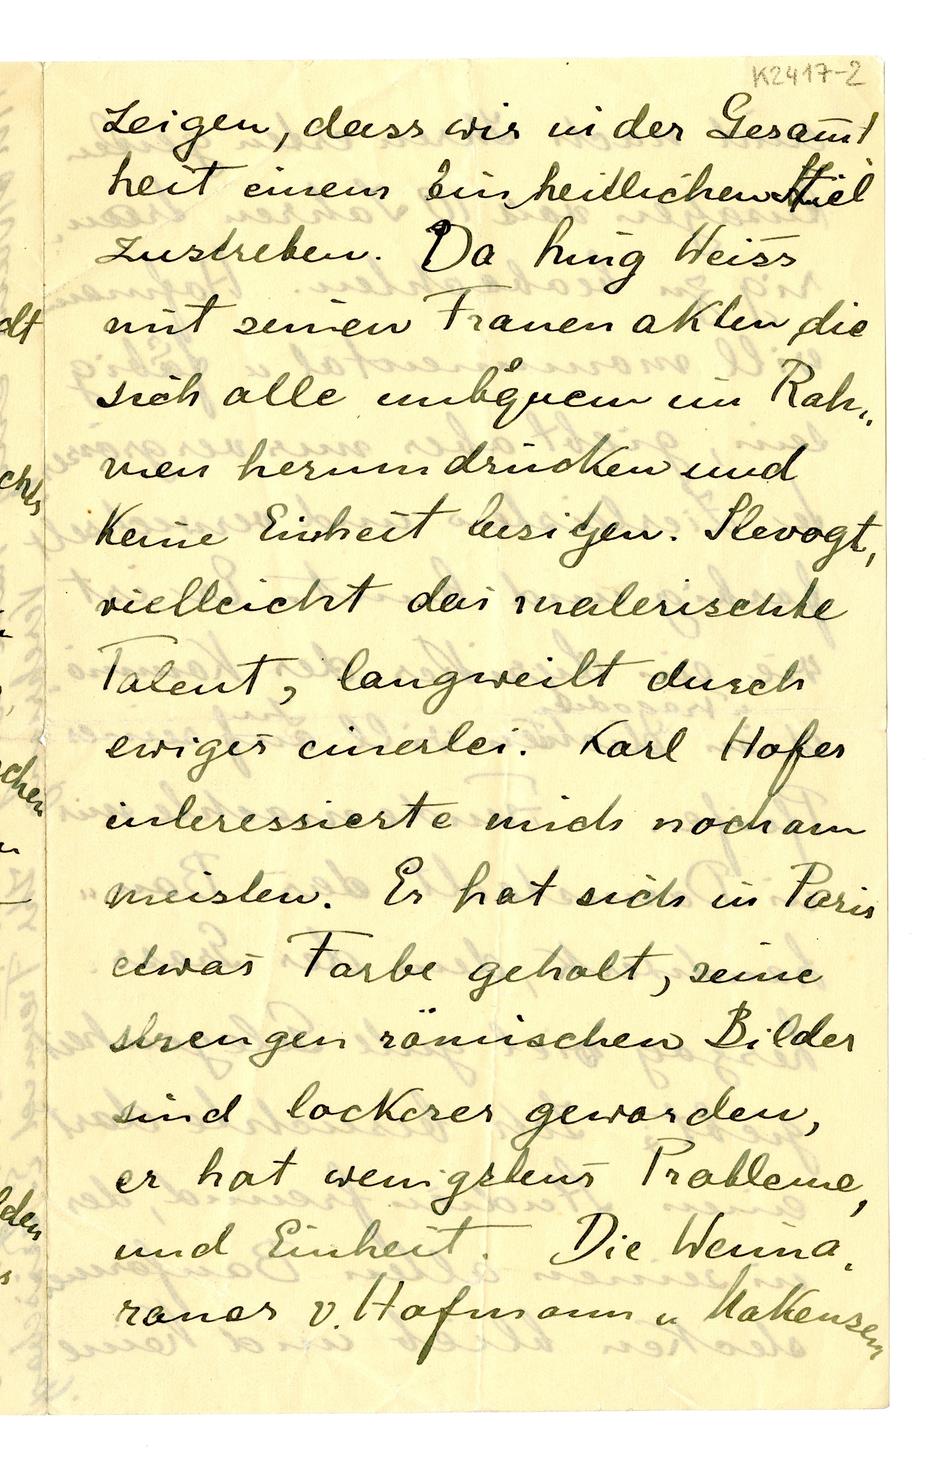 K2417-2
zeigen, dass wir in der Gesamt
heit einem Einheitlichen Stiel
zustreben. Da hing Weiss
mit seinen Frauenakten, die
sich alle unbequem im Rah„
men herumdrücken und
Keine Einheit besitzen. Slevogt,
vielleicht das malerischte
Talent, langweilt durch
ewiges einerlei. Karl Hofer
interessierte mich noch am
meisten. Er hat sich in Paris
etwas Farbe geholt, seine
strengen römischen Bilder
sind lockerer geworden,
er hat wenigstens Probleme,
und Einheit. Die Weima„
raner v. Hofmann u Makensen